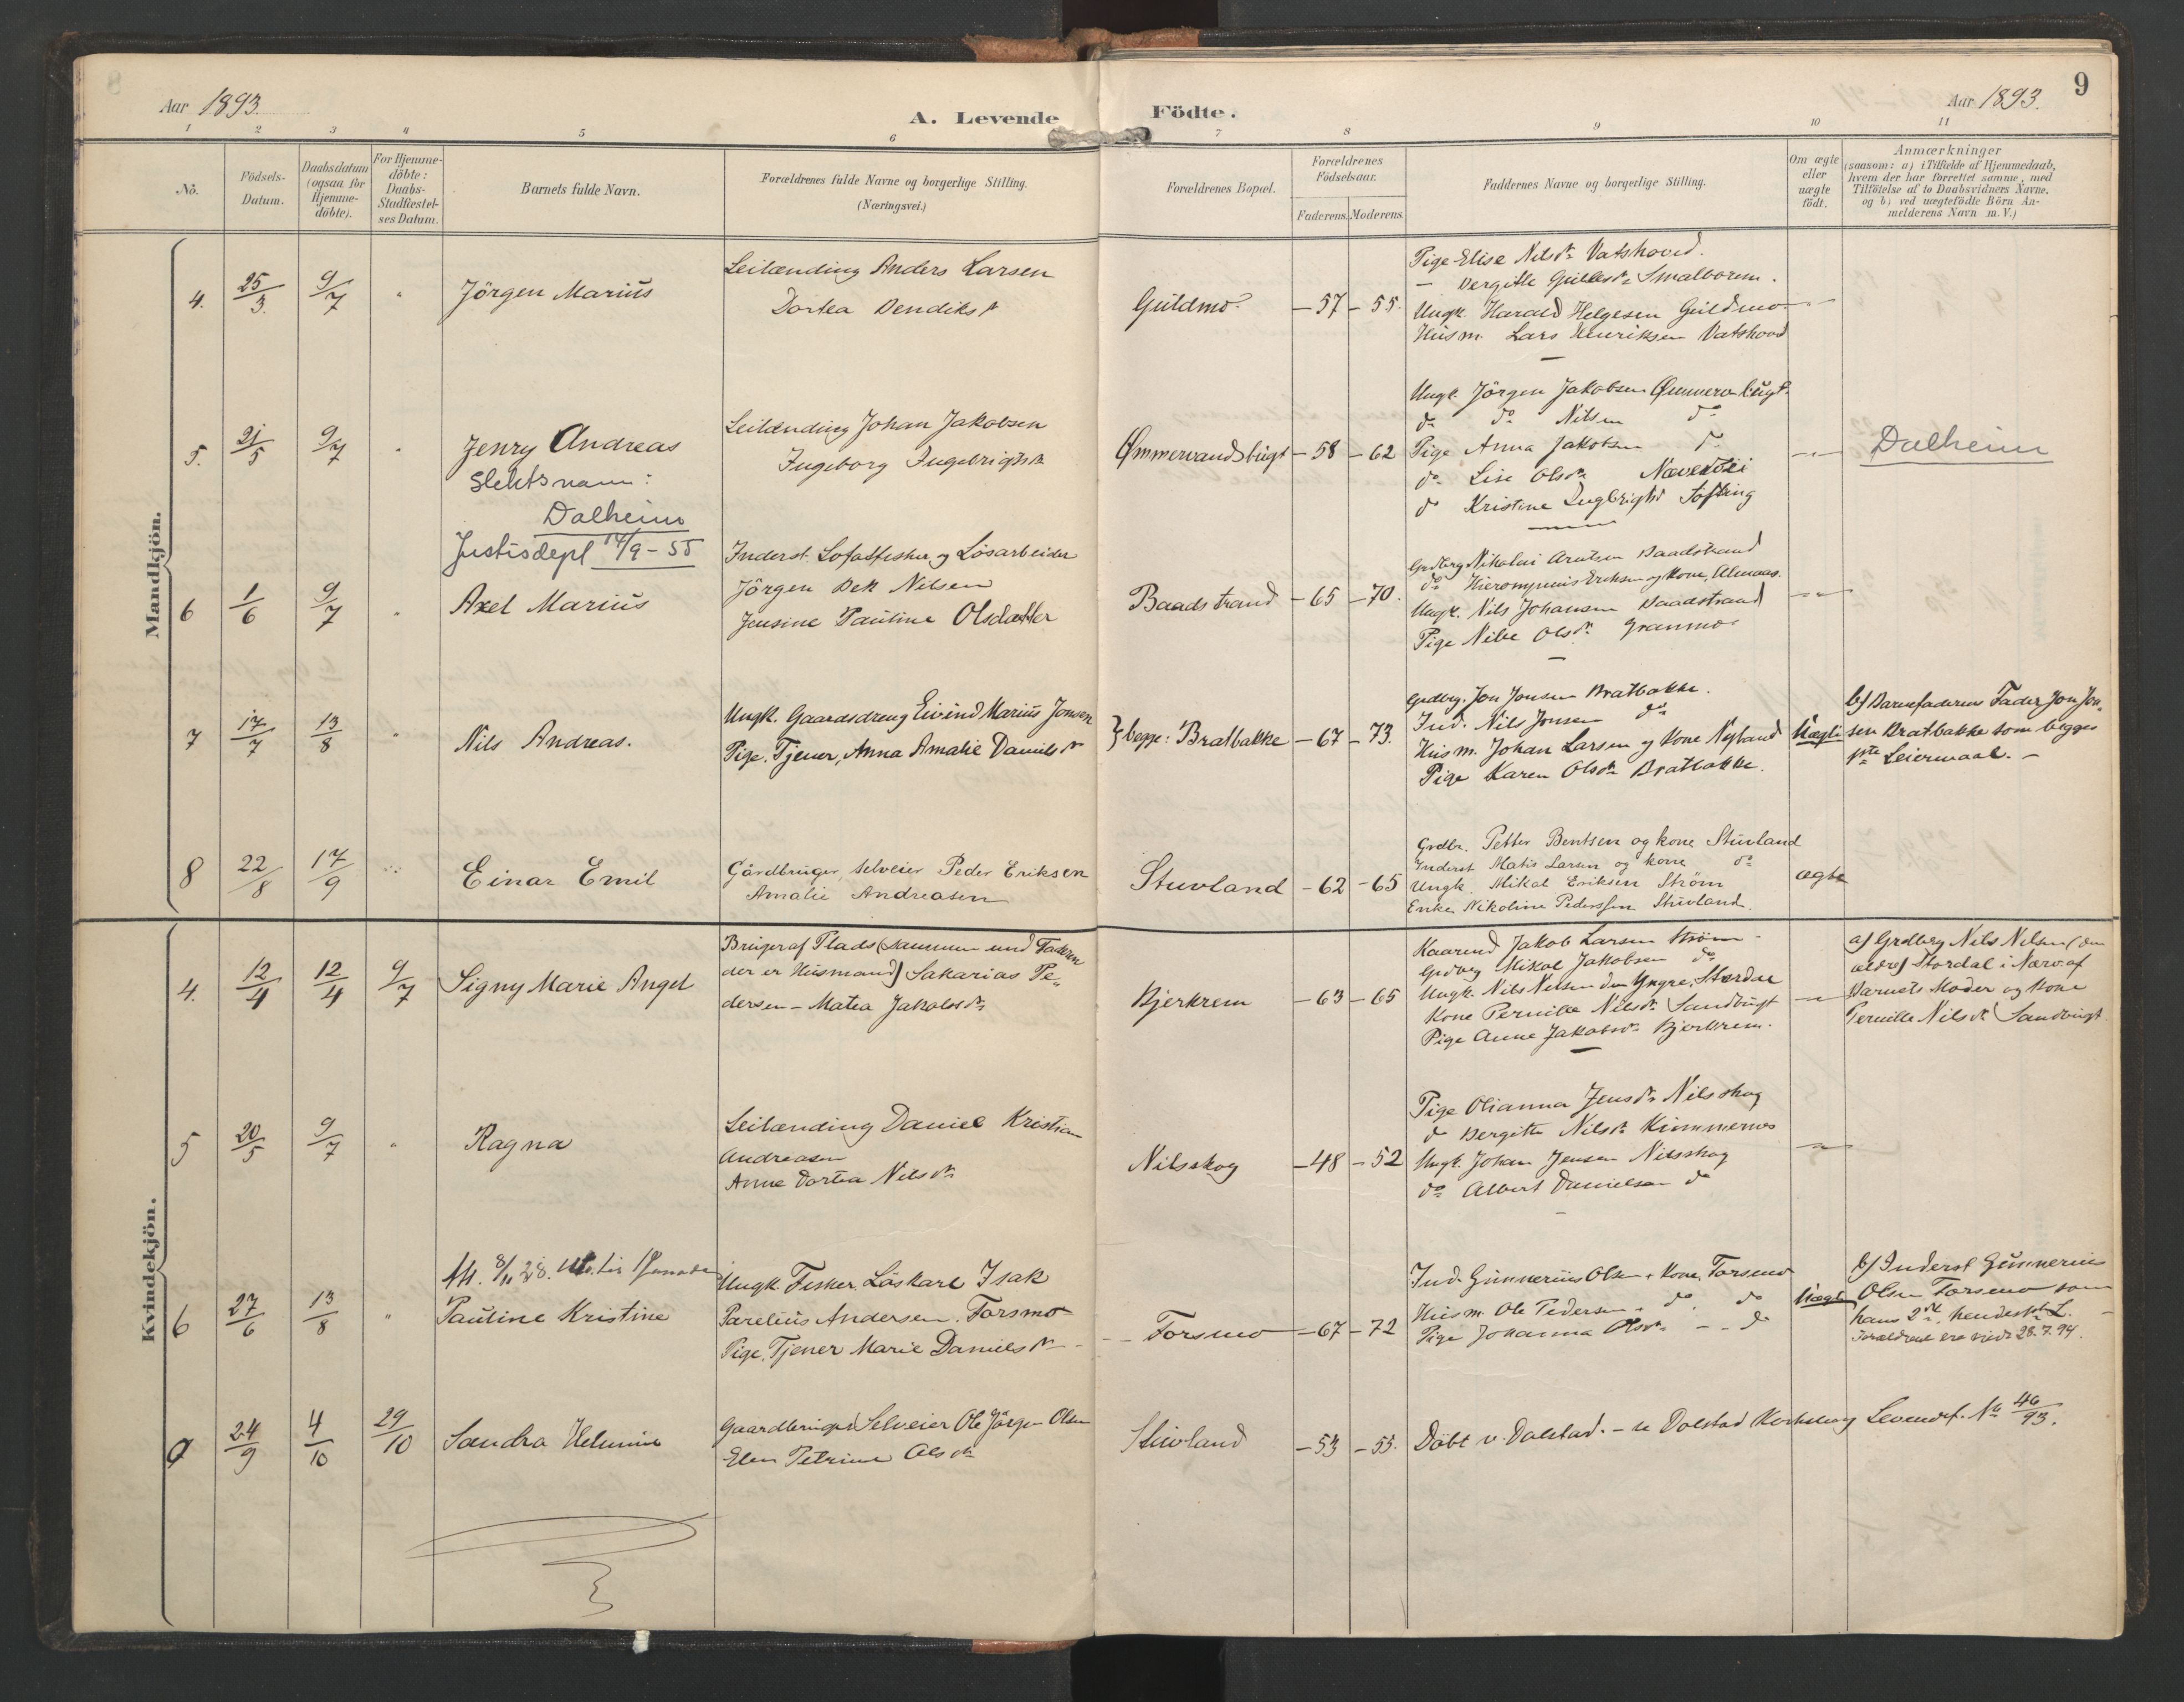 9
Aar 1893.
A. Levende Födte.
Aar 1893.
1 2 3 4 5 6 7 8 9 10 11
No.
Födsels-Datum.
Daabsdatum (ogsaa for Hjemme-döbte).
For Hjemme-döbte: Daabs-Stadfæstel-ses Datum.
Barnets fulde Navn.
Forældrenes fulde Navne og borgerlige Stilling.
(Næringsvei.)
Forældrenes Bopæl.
Forældrenes Födselsaar.
Faderens. Moderens.
Faddernes Navne og borgerlige Stilling.
Om ægte eller uægte födt.
Anmærkninger
(saasom: a) i Tilfælde af Hjemmedaab,
hvem der har forrettet samme, med
Tilföielse af to Daabsvidners Navne,
og b) ved uægtefödte Börn An-
melderens Navn m. V.)
Mandkjön.
4. 25/3. 9/7 " Jörgen Marius
Leilænding Anders Larsen
Dortea Bendiksd
Guldmo - 57 - 55.
Pige Elise Nilsdr Vatshoved.
— Bergitte Gullesdr Smalborem.
Ungk. Harald Helgesen Guldmo
Husm. Lars Henriksen Vatshoved
5. 21/5 9/7 " Jenry Andreas
Slektsnavn:
Dalheim
Justisdept 14/9-55
Leilænding Johan Jakobsen
Ingeborg Ingebrigtsdr
Ømmervandsbugt - 58 - 62
Ungk. Jörgen Jakobsen Ømmervbugt.
do do Nilsen do
Pige Anna Jakobsen do
do Lise Olsdr
do Kristine Ingbrigtsd Tofting
Dalheim
6 1/6 9/7 " Axel Marius
Inderst. Lofotfisker og Lösarbeider
Jörgen Bek Nilsen
Jensine Pauline Olsdatter
Baadstrand - 65 - 70.
Grdbrg Nikolai Arntsen Baadstrand
do Hieronymus Eriksen og Kone, Almaas.
Ungk. Nils Johansen Baadstrand
Pige Nille Olsdr Granmo
7 17/7 13/8 " Nils Andreas.
Ungk. Gaardsdreng Eivind Marius Jonsen
Pige. Tjener, Anna Amalie Danielsdr
begge: Bratbakke - 67 - 73.
Grdbrg. Jon Jonsen Bratbakke.
Ind. Nils Jonsen do
Husm. Johan Larsen og Kone Nyland
Pige Karen Olsdr Bratbakke.
Uægte
b) Barnefaderens Fader Jon Jon-
sen Bratbakke som begges
1ste Leiermaal. —
8 22/8 17/9 Einar Emil
Gårdbruger, selveier Peder Eriksen
Amalie Andreasen
Stuvland - 62 - 65
Grdbr. Petter Bentsen og kone Stuvland
Inderst Matis Larsen og kone do
Ungk. Mikal Eriksen Strøm
Enke Nikoline Pederssen Stuvland.
ægte
Kvindekjön.
4. 12/4 12/4 9/7 Signy Marie Angel
Bruger af Plads (sammen med Faderen
der er Husmand) Sakarias Pe-
dersen - Matea Jakobsdr
Bjerkrem - 63 - 65
Kaarmd Jakob Larsen Strøm
Grdbrg Mikal Jakobsen do
Ungk. Nils Nilsen den Yngre, Stordal
Kone Pernille Nilsdr Sandbugt
Pige Anne Jakobsdr Bjerkrem.
a) Grdbrg Nils Nilsen (den
ældre) Stordal i Nærv. af
Barnets Moder og Kone
Pernille Nilsdr Sandbugt.
5 20/5 9/7 " Ragna
Leilænding Daniel Kristian
Andreasen
Anne Dortea Nilsdr
Nilsskog - 48 - 52
Pige Olianna Jensdr Nilsskog
do Bergitte Nilsdr Kimmernes
Ungk. Johan Jensen Nilsskog
do Albert Danielsen do
6 27/6 13/8 " Att. 8/11 28. til
Pauline Kristine
Ungk. Fisker Löskarl Isak
Parelius Andersen. Forsmo
Pige. Tjener Marie Danielsdr
Forsmo - 67 - 72
Ind. Gunnerius Olsen + Kone. Forsmo
Husm. Ole Pedersen " do do
Pige Johanna Olsdr - - do
Uægte
b) Inderst Gunnerius
Olsen Forsmo som
hans 2det, hendes 1st L.
Forældrene ere viede 28.7.94.
24/9 4/10 29/10 Sandra Helmine
Gaardbruger Selveier Ole Jörgen Olsen
Elen Petrine Olsdr
Stuvland - 53 - 55.
Döbt v. Dolstad. - se Dolstad Kirkebog Levendef. No 46/93.